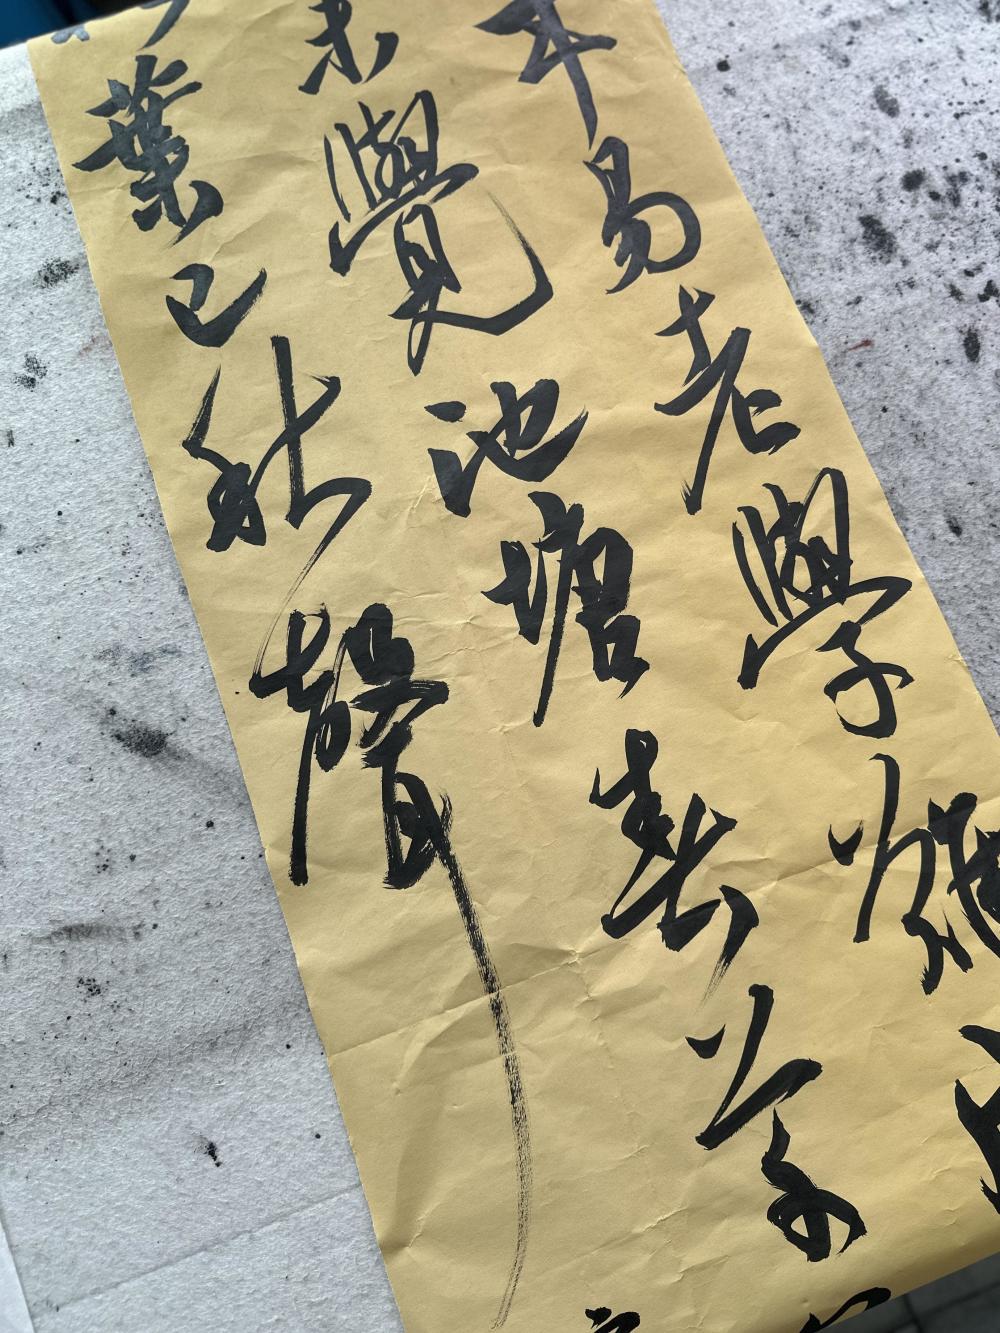 年易老學難
未覺池塘春草
葉已秋聲